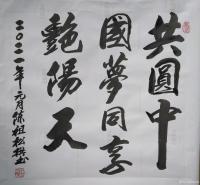 共圓中
國夢同享
艷陽天
二〇二一年元月陈祖松书